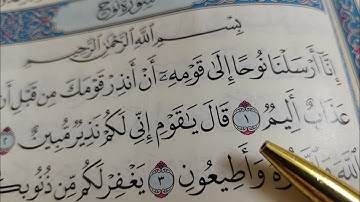 سورة نوح
بسم الله الرحمن الرحيم
إنا أرسلنا نوحا إلى قومه أن أنذر قومك من قبل أن
عذاب أليم ١ قال يا قوم إني لكم نذير مبين ٢
الله واتقوه وأطيعون ٣ يغفر لكم من ذنوبكم